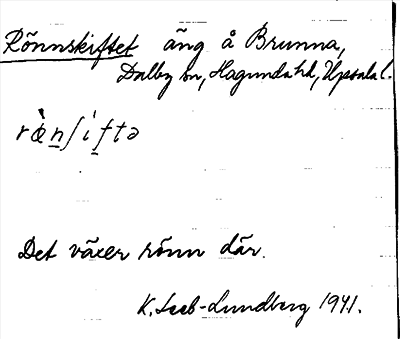 Rönnskiftet äng å Brunna,
Dalby sn, Hagunda hd, Upsala l.
rœ̀n̲ʃif̲tə
Det växer rönn där.
K. Leeb-Lundberg 1941.